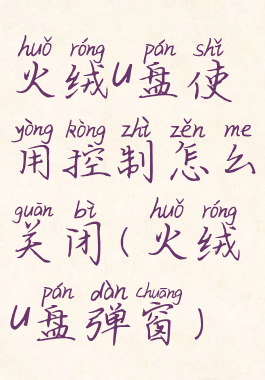 huǒ róng pán shǐ
火绒U盘使
yòng kòng zhì zěn me
用控制怎么
guān bì huǒ róng
关闭(火绒
pán dàn chuāng
U盘弹窗)